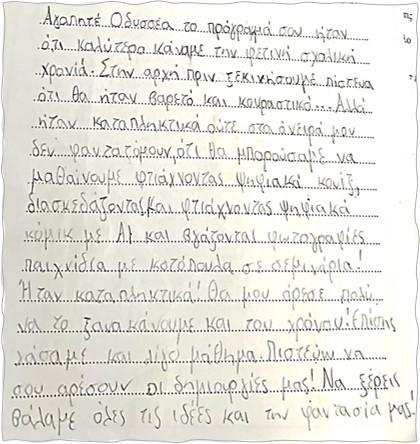 Αγαπητέ Οδυσσέα το πρόγραμμά σου ήταν
ότι καλύτερο κάναμε την φετινή σχολική
χρονιά. Στην αρχή πριν ξεκινήσουμε πίστευα
ότι θα ήταν βαρετό και κουραστικό... Αλλά
ήταν καταπληκτικά ούτε στα όνειρά μου
δεν φανταζόμουν,ότι θα μπορούσαμε να
μαθαίνουμε φτιάχνοντας ψηφιακά κουίζ,
διασκεδάζοντας,και φτιάχνοντας ψηφιακά
κόμικ με AI και βγάζονται φωτογραφίες
παιχνίδια με κοτόπουλα σε σεμινάρια!
Ήταν καταπληκτικά! Θα μου άρεσε πολύ
να το ξανα κάνουμε και του χρόνου! Επίσης
χάσαμε και λίγο μάθημα. Πιστεύω να
σου αρέσουν οι δημιουργίες μας! Να ξέρεις
βάλαμε όλες τις ιδέες και την φαντασία μας!